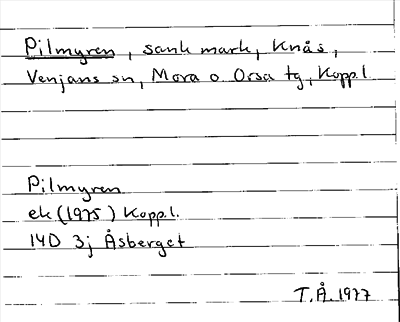 Pilmyren, sank mark, Knås,
Venjans sn, Mora o Orsa tg, Kopp.l.
Pilmyren
ek (1975) Kopp.l.
14D 3j Åsberget
T.Å. 1977